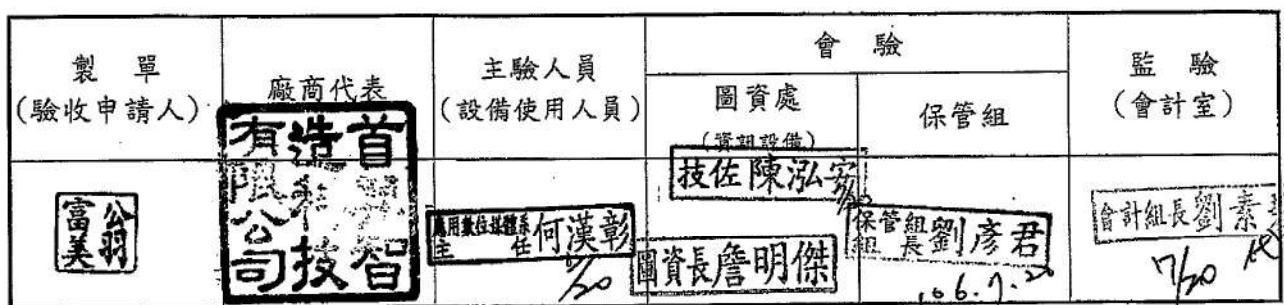 製 單
(驗收申請人)
廠商代表
主驗人員
(設備使用人員)
會 驗
圖資處
(資訊設備)
保管組
監 驗
(會計室)
翁
富美
造
技
有限公司
首
智
應用數位媒體系
主 任
何漢彰
7/20
技佐陳泓安
圖資長詹明傑
保管組
組 長
劉彥君
106.7.20
會計組長劉素
7/20